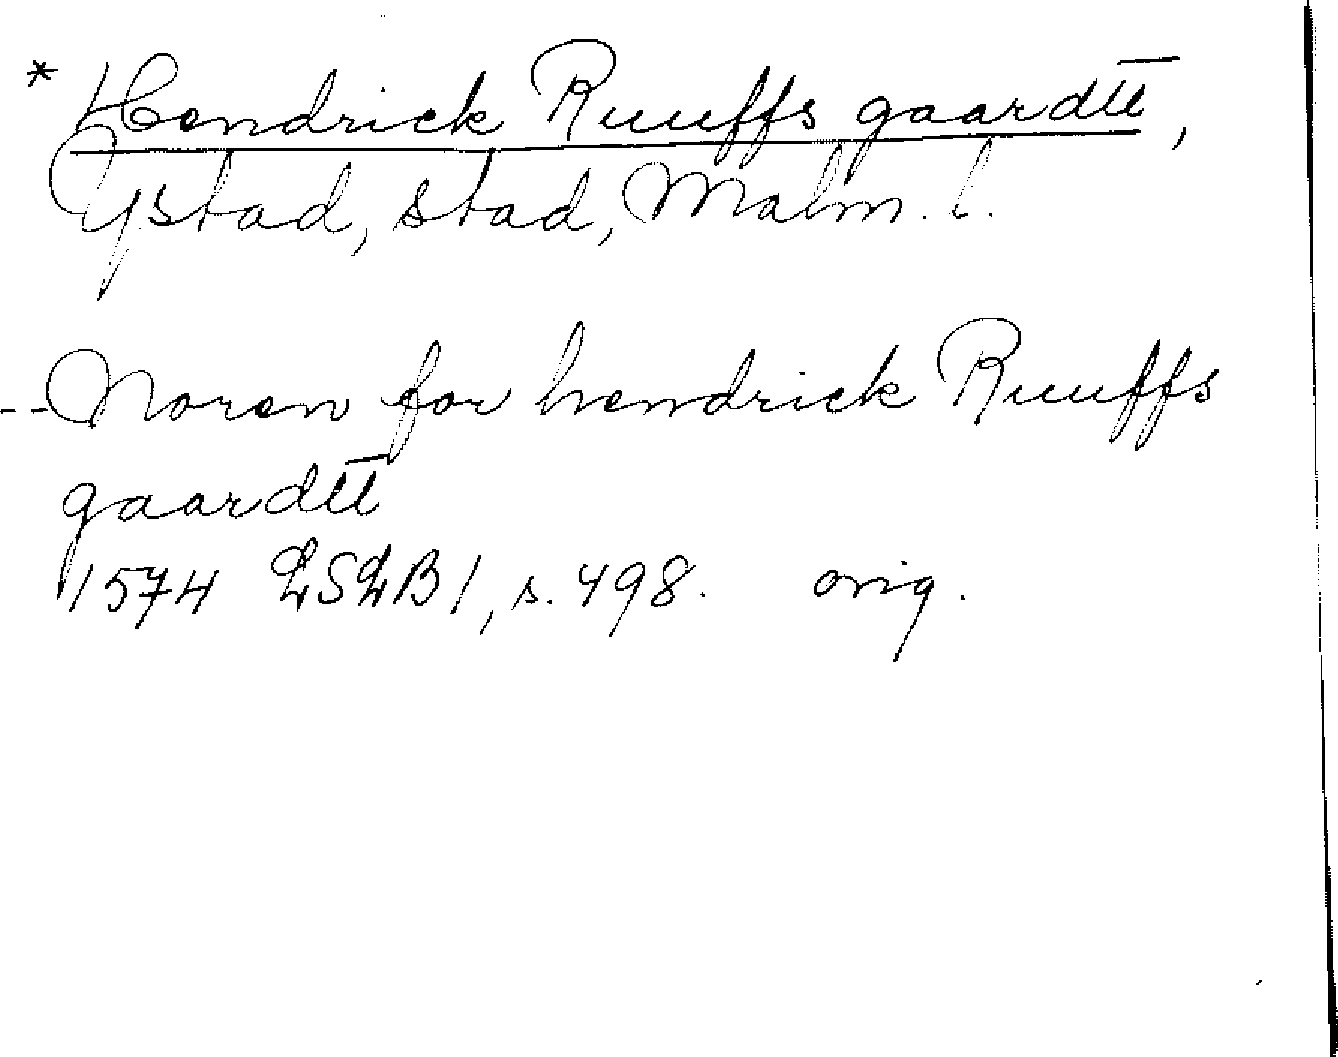 * Hendrick Ruuffs gaardtt,
Ystad, stad, Malm. l.
-- Noren for hendrick Ruuffs
gaardtt
1574 LSLB 1, s. 498. orig.